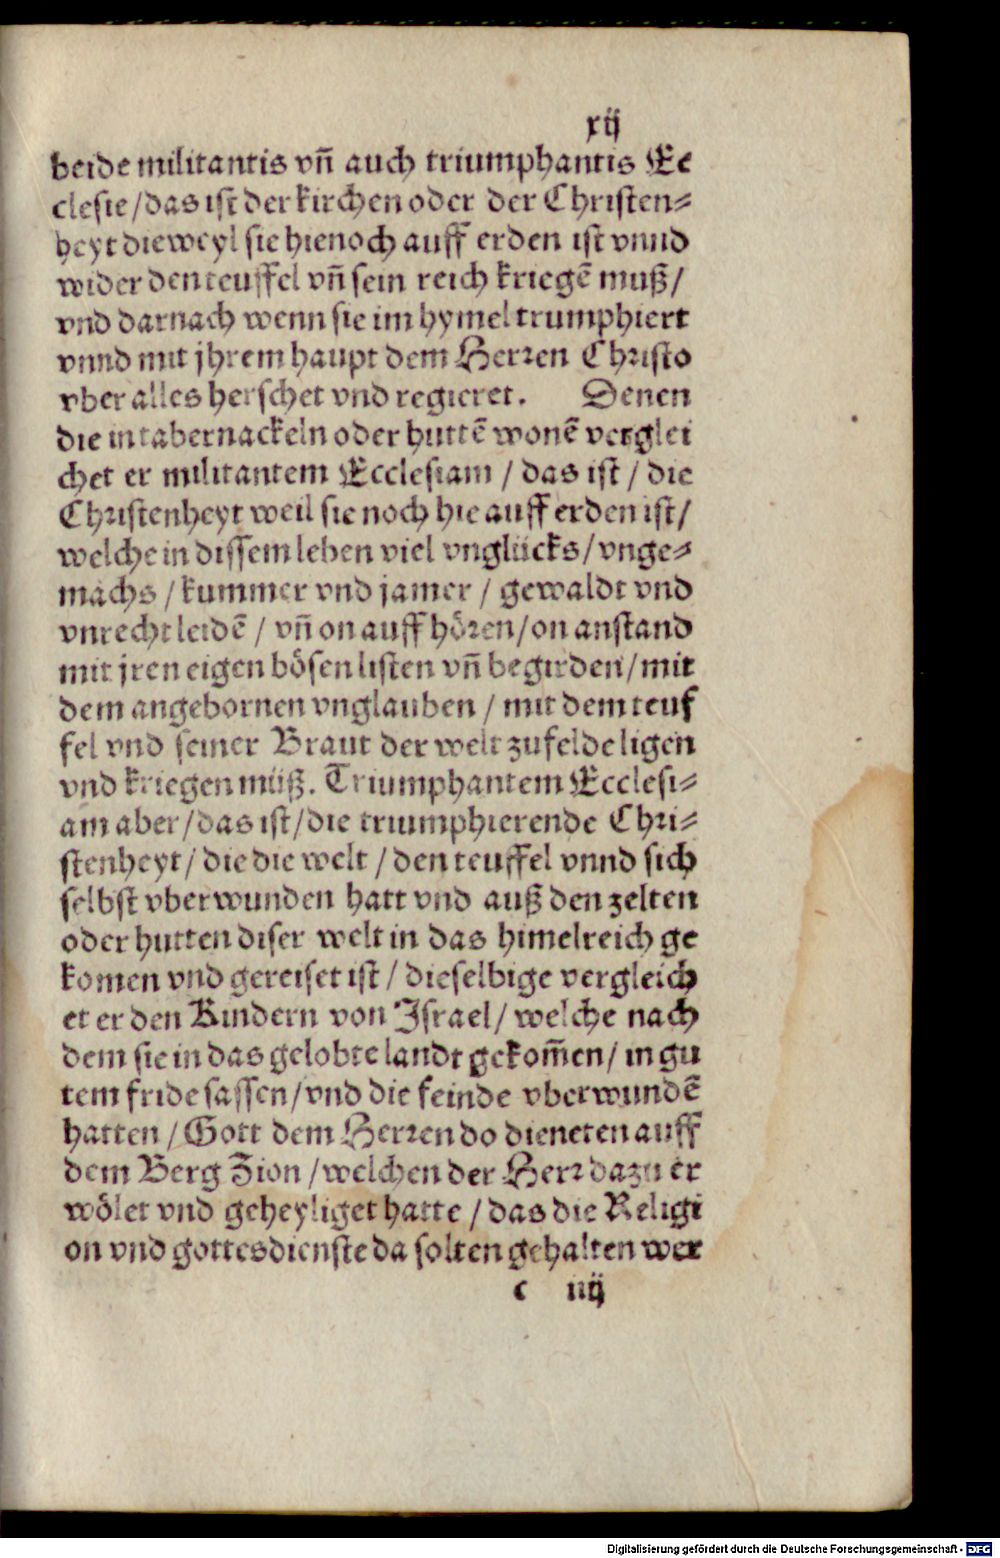 xij
beide militantis vñ auch triumphantis Ec
clesie / das ist der kirchen oder der Christen⸗
heyt dieweyl sie hienoch auff erden ist vnnd
wider den teuffel vñ sein reich kriegē muß /
vnd darnach wenn sie im hymel trumphiert
vnnd mit jhrem haupt dem Herren Christo
vber alles herschet vnd regieret. Denen
die in tabernackeln oder huttē wonē verglei
chet er militantem Ecclesiam / das ist / die
Christenheyt weil sie noch hie auff erden ist /
welche in dissem leben viel vnglücks / vnge⸗
machs / kummer vnd jamer / gewaldt vnd
vnrecht leidē / vñ on auff hören / on anstand
mit jren eigen bösen listen vñ begirden / mit
dem angebornen vnglauben / mit dem teuf
fel vnd seiner Braut der welt zufelde ligen
vnd kriegen müß. Triumphantem Ecclesi⸗
am aber / das ist / die triumphierende Chri⸗
stenheyt / die die welt / den teuffel vnnd sich
selbst vberwunden hatt vnd auß den zelten
oder hutten diser welt in das himelreich ge
komen vnd gereiset ist / dieselbige vergleich
et er den Kindern von Israel / welche nach
dem sie in das gelobte landt gekom̄en / in gu
tem fride sassen / vnd die feinde vberwundē
hatten / Gott dem Herren do dieneten auff
dem Berg Zion / welchen der Herr dazu er
wölet vnd geheyliget hatte / das die Religi
on vnd gottesdienste da solten gehalten wer
c iiij
Digitalisierung gefördert durch die Deutsche Forschungsgemeinschaft - DFG